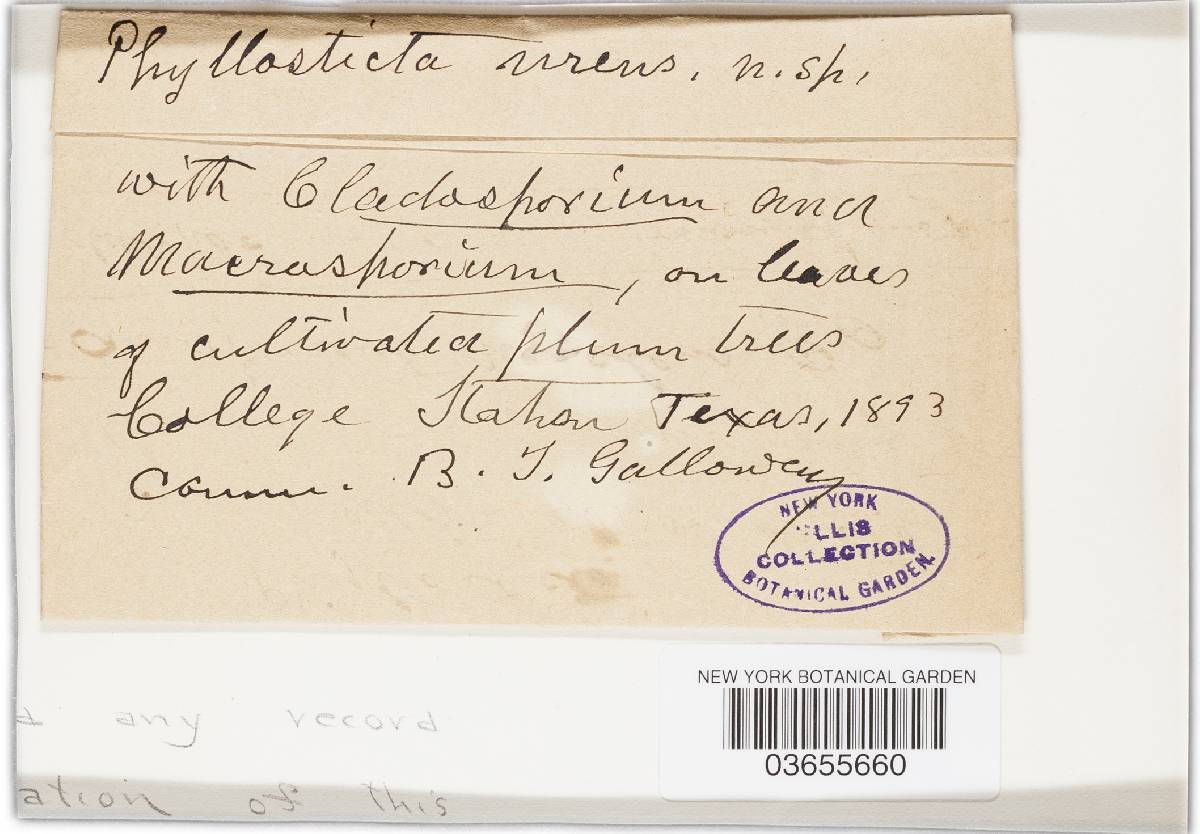 Phyllosticta urens, n. sp.
with Cladosporium and
Macrosporium, on leaves
of cultivated plum trees
College Station Texas, 1893
Comm. B. T. Galloway
NEW YORK
ELLIS
COLLECTION
BOTANICAL GARDEN.
NEW YORK BOTANICAL GARDEN
03655660
any record
ation of this